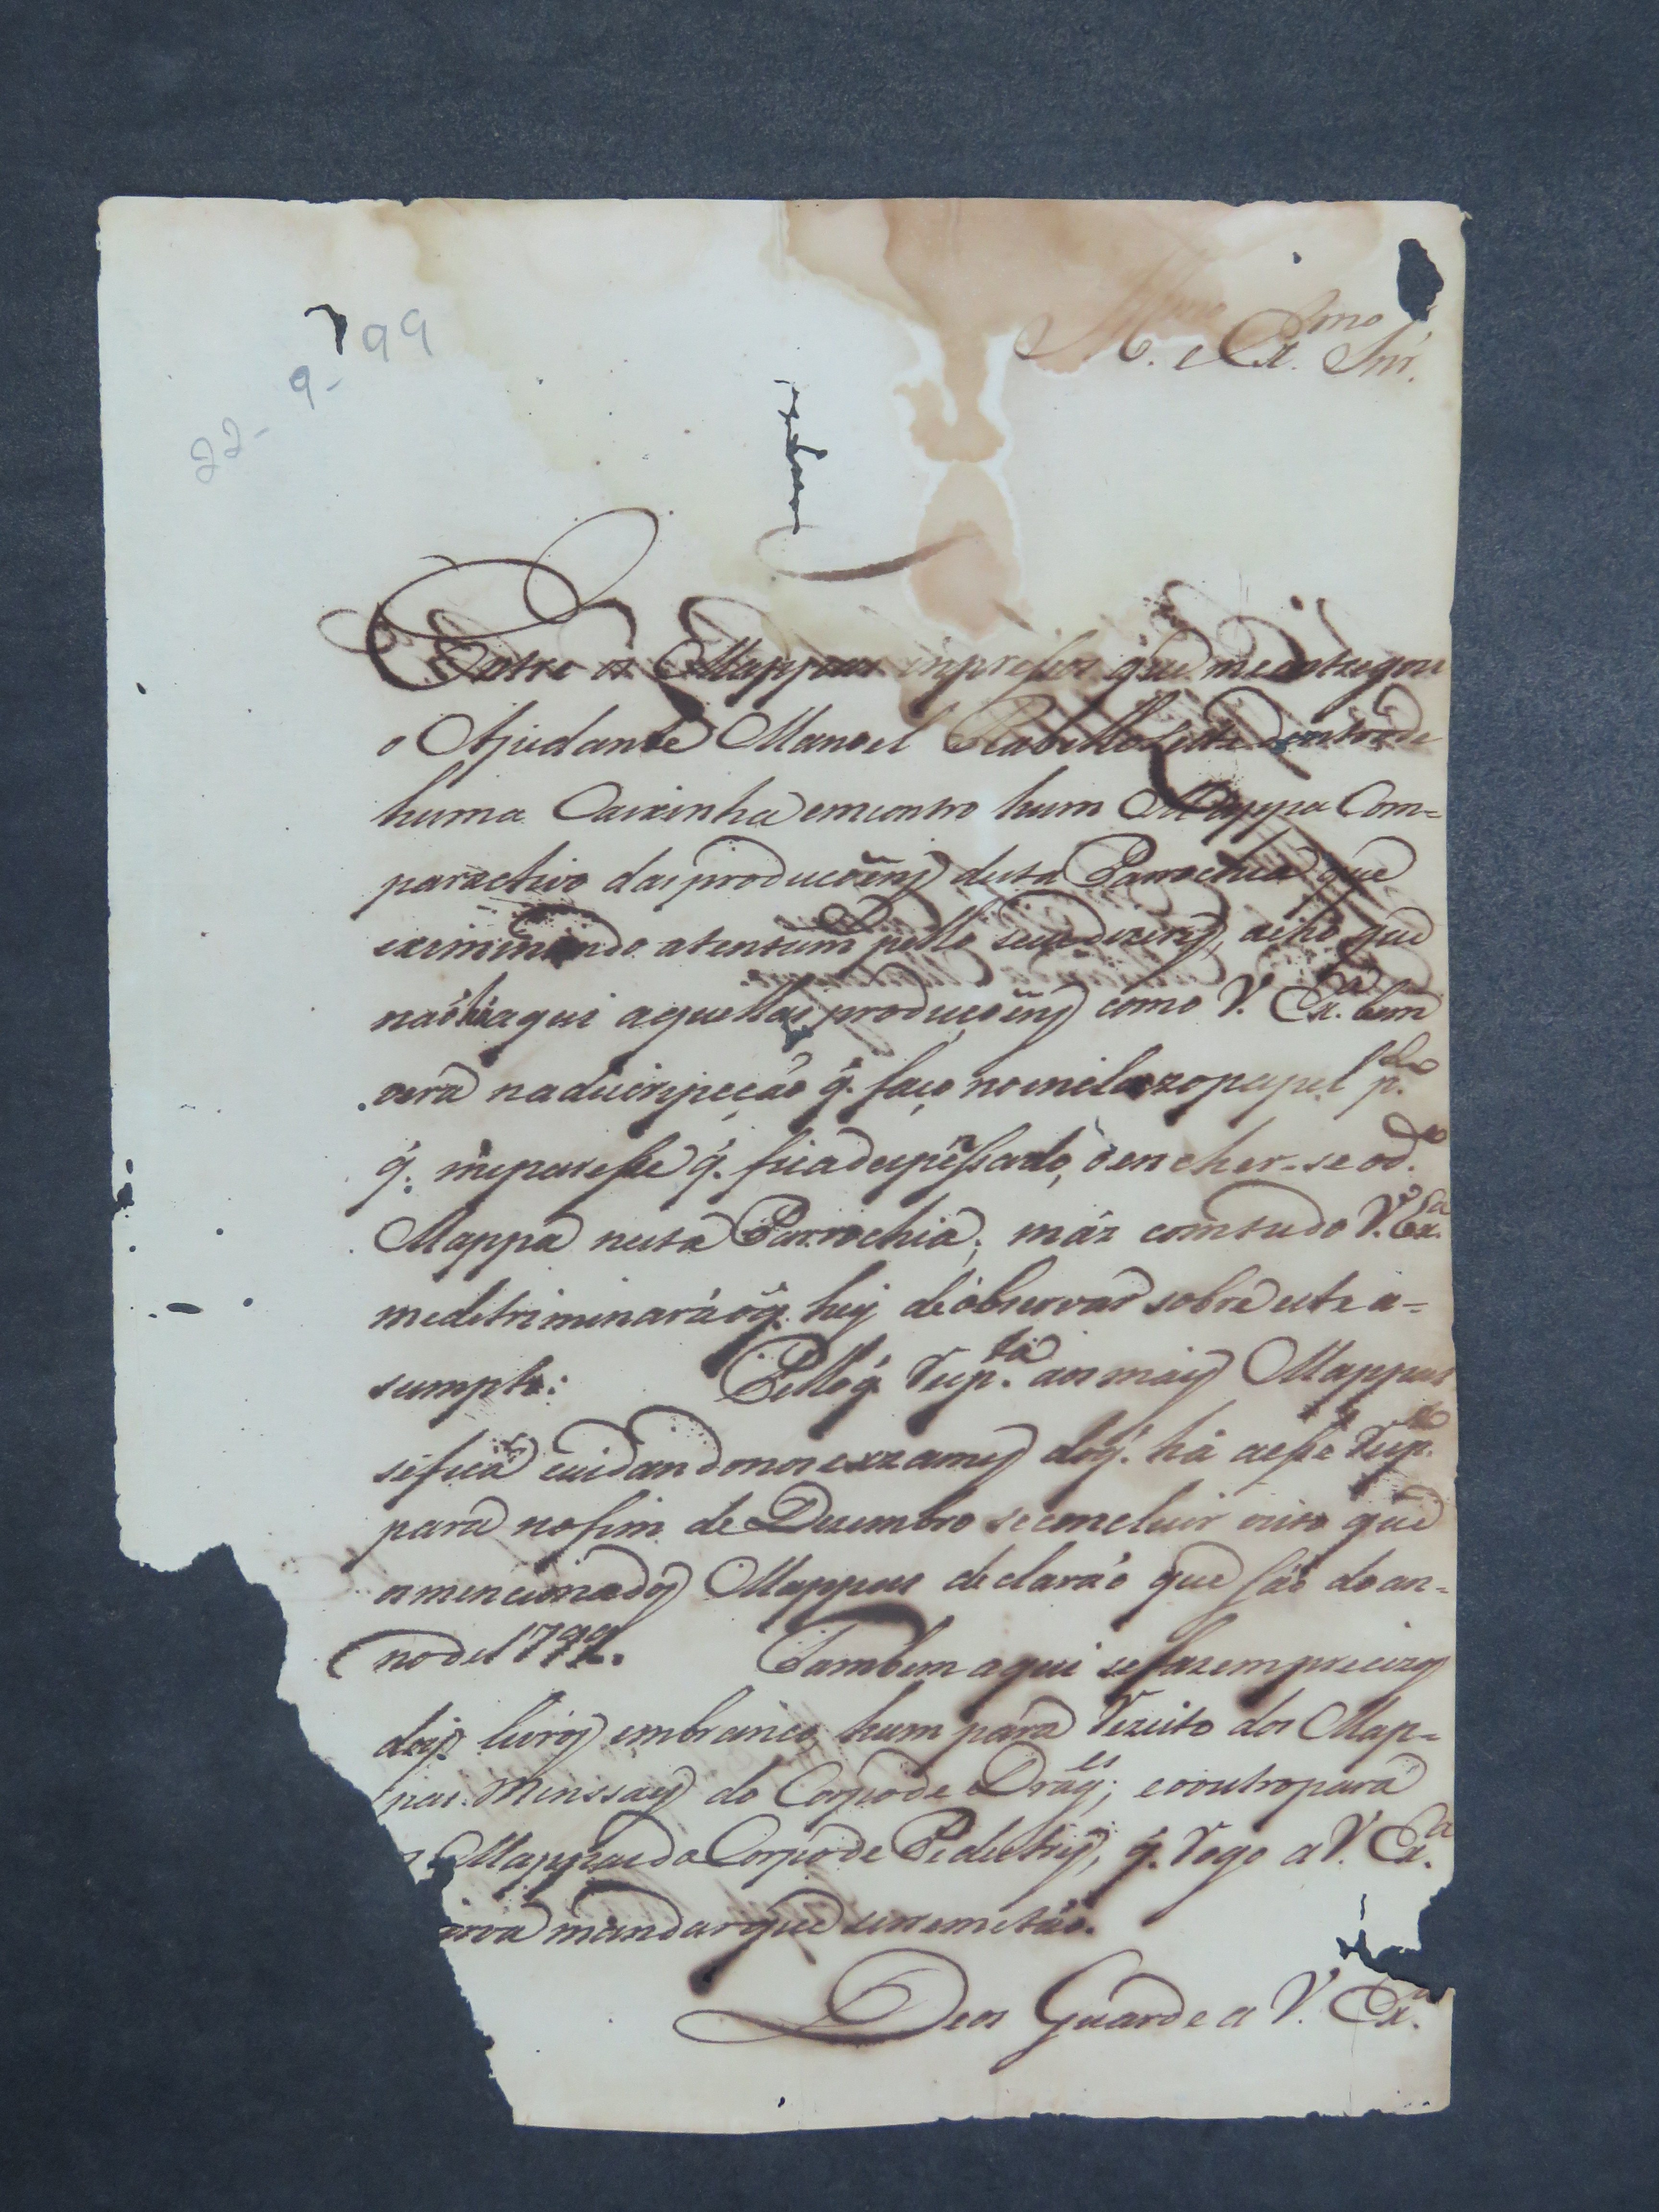 22-9-99
Ill.mo e Ex.mo Snr.
Entre os Mappas inpressos que me entregou
o Ajudante Manoel Rabello Leite dentro de
huma Caixinha emcontro hum Mappa Com=
paractivo das producoẽns desta Parrochia que
exeminando atentum pello seus dizeres, acho que
naó há aqui aquellas producoẽns como V. Ex.a bem
verá na discripcção q. faço no mesmo papel p.lo
q. me paresse q. fica despenssado, o encher-se o d.o
Mappa nesta Parrochia; máz comtudo V. Ex.a
medetriminará o q. hey de observar sobre este a=
sumpto: Pello q. Resp.ta aos mais Mappas
se fica cuidando nos exzames do q. há a esse Resp.to
para no fim de Dezembro se comcluir visto que
os mencionados Mappas declaráo que são do an=
no de 1799. Tambem aqui se fazem precizos
dois livros embranco, hum para Rezisto dos Map=
pas Menssaes do Corpo de Drag.es; e o outro para
os Mappas do Corpo de Pedestres, q. Rogo a V. Ex.a
sirva mandar que se remetáo.
Deos Guarde a V. Ex.a